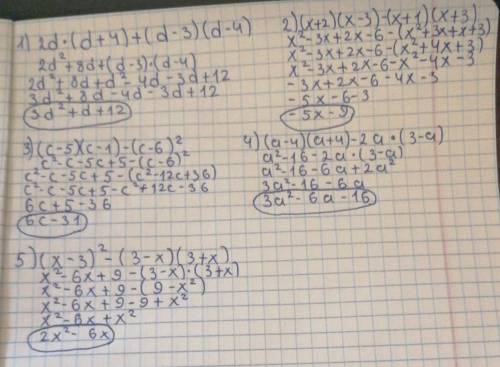 1) 2d·(d+4)+(d-3)(d-4)
2d²+8d+(d-3)·(d-4)
2d²+8d+d²-4d-3d+12
3d²+8d-4d-3d+12
3d²+d+12
2)(x+2)(x-3)-(x+1)(x+3)
x²-3x+2x-6-(x²+3x+x+3)
x²-3x+2x-6-(x²+4x+3)
x²-3x+2x-6-x²-4x-3
-3x+2x-6-4x-3
-5x-6-3
-5x-9
3)(c-5)(c-1)-(c-6)²
c²-c-5c+5-(c-6)²
c²-c-5c+5-(c²-12c+36)
c²-c-5c+5-c²+12c-36
6c+5-36
6c-31
4)(a-4)(a+4)-2a·(3-a)
a²-16-2a·(3-a)
a²-16-6a+2a²
3a²-16-6a
3a²-6a-16
5)(x-3)²-(3-x)(3+x)
x²-6x+9-(3-x)·(3+x)
x²-6x+9-(9-x²)
x²-6x+9-9+x²
x²-6x+x²
2x²-6x